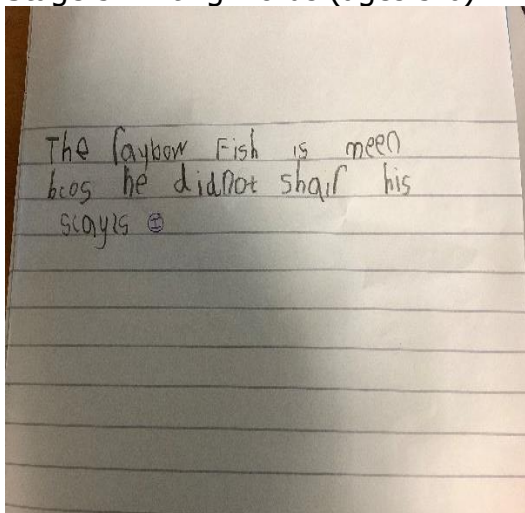 The raybow Fish is meen
bcos he didnot shair his
scayls